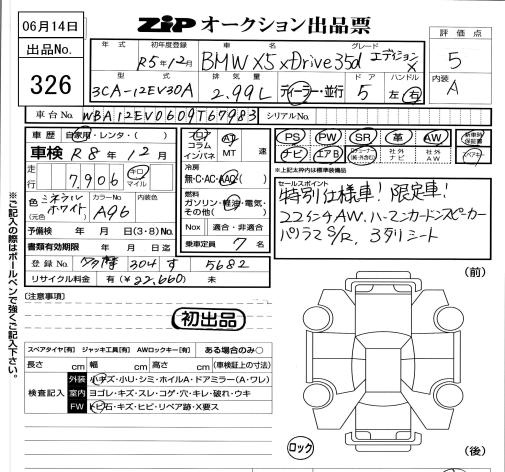 06月14日
ZIP オークション出品票
出品No.
326
年式 初年度登録 車名 グレード
R5年12月 BMW X5 xDrive35d エディションX
型式 排気量 ドア ハンドル
3CA-12EV30A 2.99L ディーラー・並行 5 左・右
評価点
5
内装
A
車台No. WBA12EV0609T67983 シリアルNo.
車歴 自家用・レンタ・( )
車検 R8年12月
走行 7,906 キロ マイル
色(元色) ミネラルホワイト カラーNo. A96 内装色
予備検 年 月 日(3・8)No.
書類有効期限 年 月 日迄
登録No. 多摩 304 す 5682
リサイクル料金 有(¥22,660) 未
フロア コラム インパネ
AT MT 速
冷房
無・C・AC・AAC
燃料
ガソリン・軽油・電気・その他( )
Nox 適合・非適合
乗車定員 7名
PS PW SR 革 AW 新車時保証書
ナビ エアB 社外ナビ 社外AW
*上記太枠内は標準装備品
セールスポイント
特別仕様車!限定車!
22インチAW、ハーマンカードンスピーカー
パノラマS/R、3列シート
※ご記入の際はボールペンで強くご記入下さい。
[注意事項]
初出品
スペアタイヤ[有] ジャッキ工具[有] AWロックキー[有] ある場合のみ○
長さ cm 幅 cm 高さ cm (車検証上の寸法)
検査記入
外装 小キズ・小U・シミ・ホイルA・ドアミラー(A・ワレ)
室内 ヨゴレ・キズ・スレ・コゲ・穴・キレ・破れ・ウキ
FW トビ石・キズ・ヒビ・リペア跡・X要ス
(前)
(後)
ロック